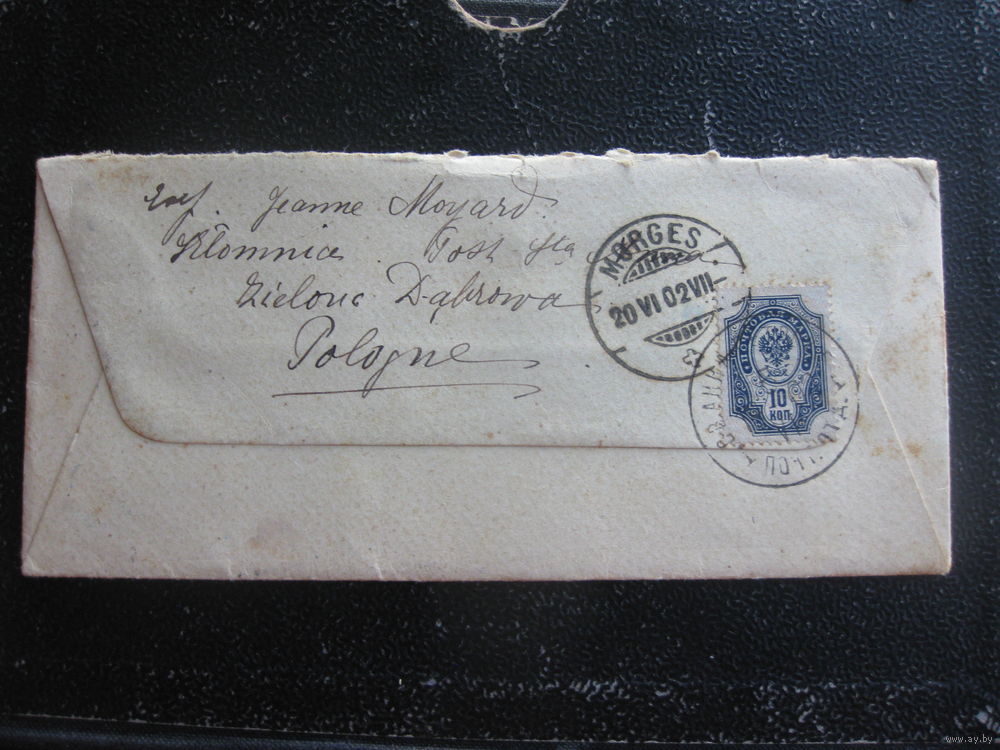 Exp. Jeanne Moyard
Kłomnice Post Sta
Zielona Dąbrowa
Pologne
MORGES
20 VI 02 VII
ПОЧТОВАЯ МАРКА
10
КОП.
www.ay.by